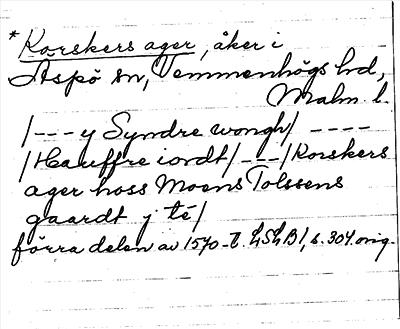 *Korskers ager, åker i
Aspö sn, Vemmenhögs hd,
Malm. l.
/--- y Syndre wongh/ ----
/Hauffre iordt/ --- /Korskers
ager hoss Moens Tolssens
gaardt y té/
förra delen av 1570-t. LSLB1, s. 304 orig.